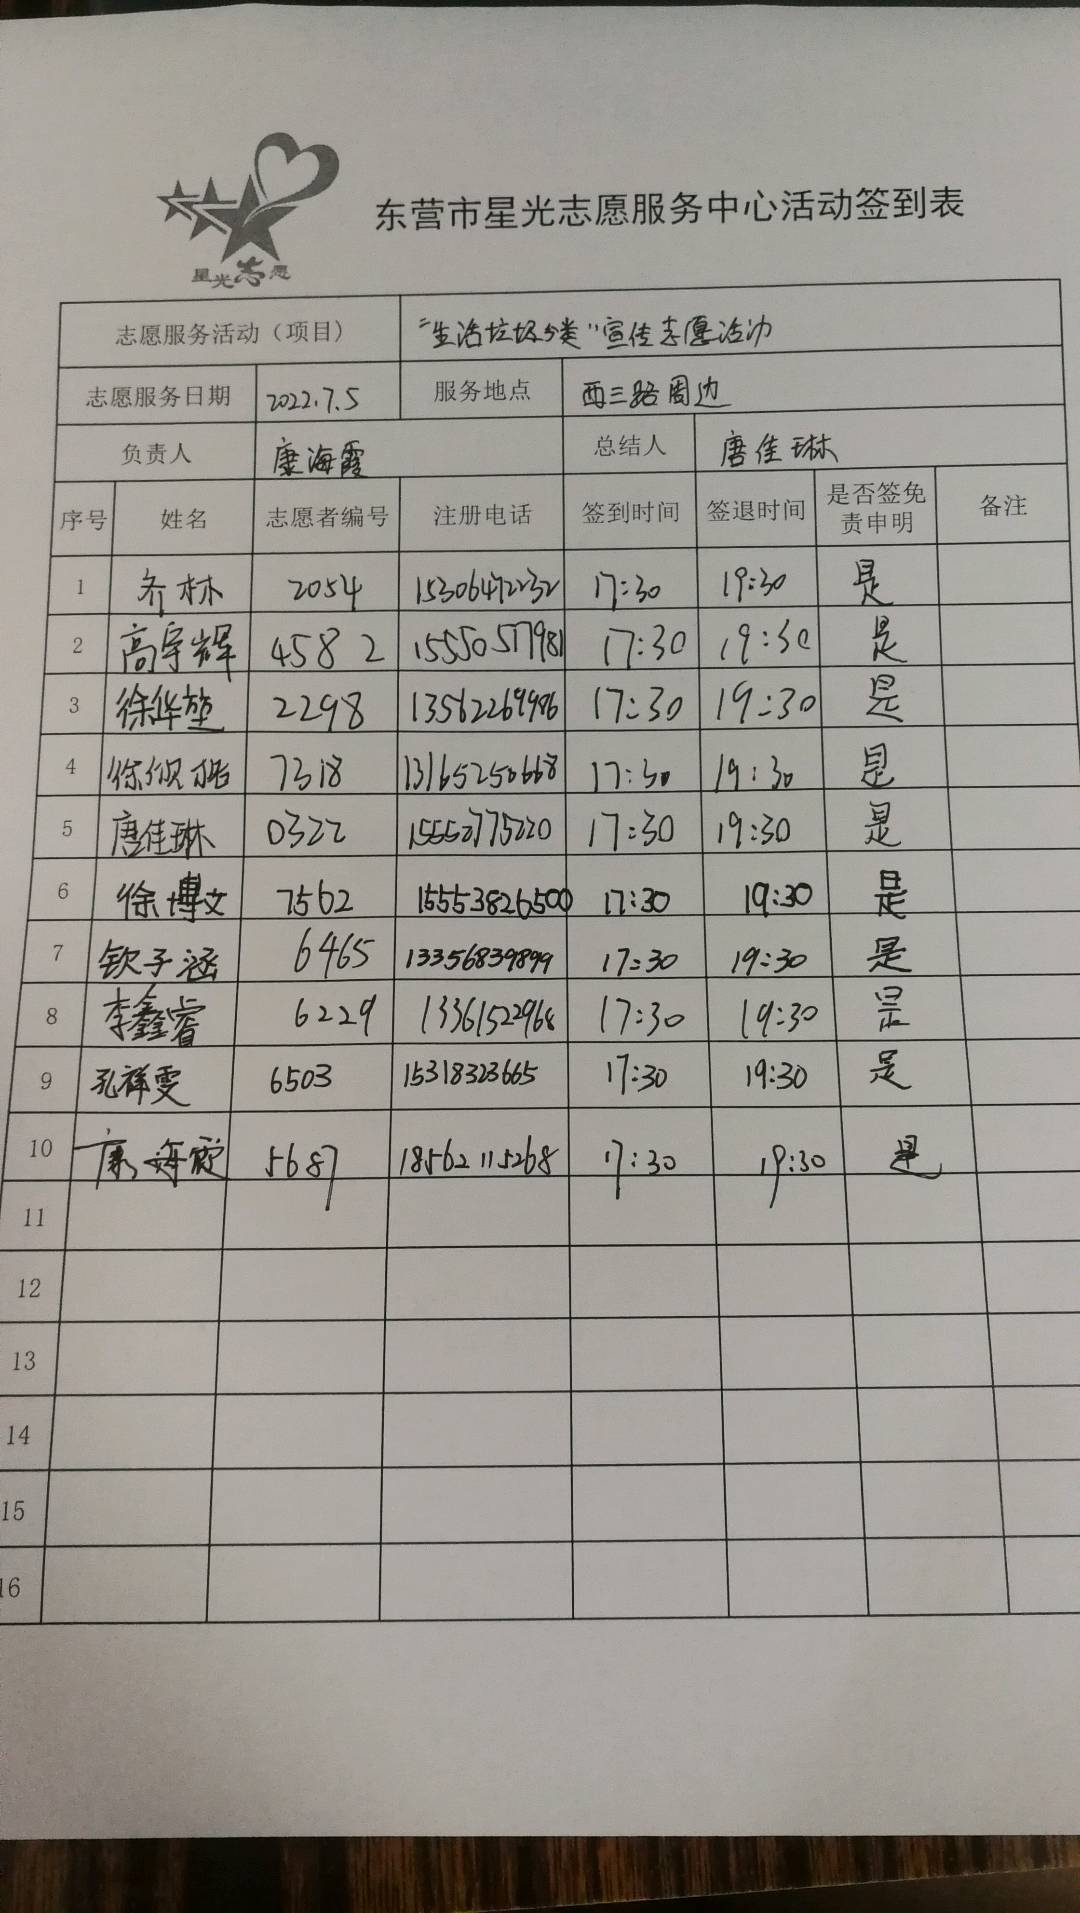 星光志愿
东营市星光志愿服务中心活动签到表
志愿服务活动（项目） “生活垃圾分类”宣传志愿活动
志愿服务日期 2022.7.5 服务地点 西三路周边
负责人 康海霞 总结人 唐佳琳
序号 姓名 志愿者编号 注册电话 签到时间 签退时间 是否签免责申明 备注
1 齐林 2054 15306472232 17:30 19:30 是
2 高宇辉 4582 15550517981 17:30 19:30 是
3 徐华堃 2298 13562269986 17:30 19:30 是
4 7318 13165250668 17:30 19:30 是
5 唐佳琳 0322 15552775220 17:30 19:30 是
6 徐博文 7562 15553826500 17:30 19:30 是
7 钦子涵 6465 13356839899 17:30 19:30 是
8 李鑫睿 6229 13361522968 17:30 19:30 是
9 孔祥雯 6503 15318323665 17:30 19:30 是
10 康海霞 5687 18562115268 17:30 19:30 是
11
12
13
14
15
16